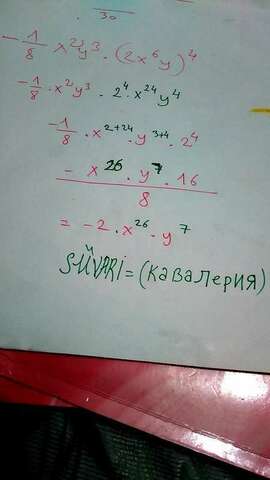 30
-1/8 x²y³ · (2x⁶y)⁴
-1/8 · x²y³ · 2⁴ · x²⁴ y⁴
-1/8 · x²⁺²⁴ · y³⁺⁴ · 2⁴
- x²⁶ · y⁷ · 16
8
= -2 · x²⁶ · y⁷
SÜVARİ = (кавалерия)